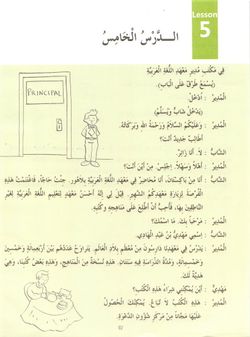 Lesson
5
الـدَّرْسُ الْخَامِسُ
فِي مَكْتَبِ مُدِيرِ مَعْهَدِ اللُّغَةِ الْعَرَبِيَّةِ
(يُسْمَعُ طَرْقٌ عَلَى الْبَابِ)
PRINCIPAL
المُدِيرُ : اُدْخُلْ.
(يَدْخُلُ شَابٌّ وَيُسَلِّمُ)
المُدِيرُ : وَعَلَيْكُمُ السَّلَامُ وَرَحْمَةُ اللهِ وَبَرَكَاتُهُ.
أَطَالِبٌ جَدِيدٌ أَنْتَ؟
الشَّابُّ : لَا. أَنَا زَائِرٌ.
المُدِيرُ : أَهْلاً وَسَهْلاً. اِجْلِسْ. مِنْ أَيْنَ أَنْتَ؟
الشَّابُّ : أَنَا مِنْ بَاكِسْتَانَ. أَنَا مُحَاضِرٌ فِي مَعْهَدِ اللُّغَةِ الْعَرَبِيَّةِ بِلَاهُورَ. جِئْتُ حَاجًّا، فَاغْتَنَمْتُ هَذِهِ
الْفُرْصَةَ لِزِيَارَةِ مَعْهَدِكُمُ الشَّهِيرِ. قِيلَ لِي إِنَّهُ أَحْسَنُ مَعْهَدٍ لِتَعْلِيمِ اللُّغَةِ الْعَرَبِيَّةِ لِغَيْرِ
النَّاطِقِينَ بِهَا، فَأُحِبُّ أَنْ أَطَّلِعَ عَلَى مَنَاهِجِهِ وَكُتُبِهِ.
المُدِيرُ : مَرْحَبًا بِكَ. مَا اسْمُكَ؟
الشَّابُّ : اِسْمِي مَهْدِيُّ بْنُ عَبْدِ الْهَادِي.
المُدِيرُ : يَدْرُسُ فِي مَعْهَدِنَا دَارِسُونَ مِنْ مُعْظَمِ بِلَادِ الْعَالَمِ. يَتَرَاوَحُ عَدَدُهُمْ بَيْنَ أَرْبَعِمِائَةٍ وَخَمْسِينَ
وَخَمْسِمِائَةٍ. وَمُدَّةُ الدِّرَاسَةِ فِيهِ سَنَتَانِ. هَذِهِ نُسْخَةٌ مِنَ الْمَنَاهِجِ، وَهَذِهِ الْكُتُبُ
هَدِيَّةٌ لَكَ.
مَهْدِيٌّ : أَيْنَ يُمْكِنُنِي شِرَاءُ هَذِهِ الْكُتُبِ؟
المُدِيرُ : هَذِهِ الْكُتُبُ لَا تُبَاعُ. يُمْكِنُكَ الْحُصُولُ
عَلَيْهَا مَجَّانًا مِنْ مَرْكَزِ شُؤُونِ الدَّعْوَةِ.